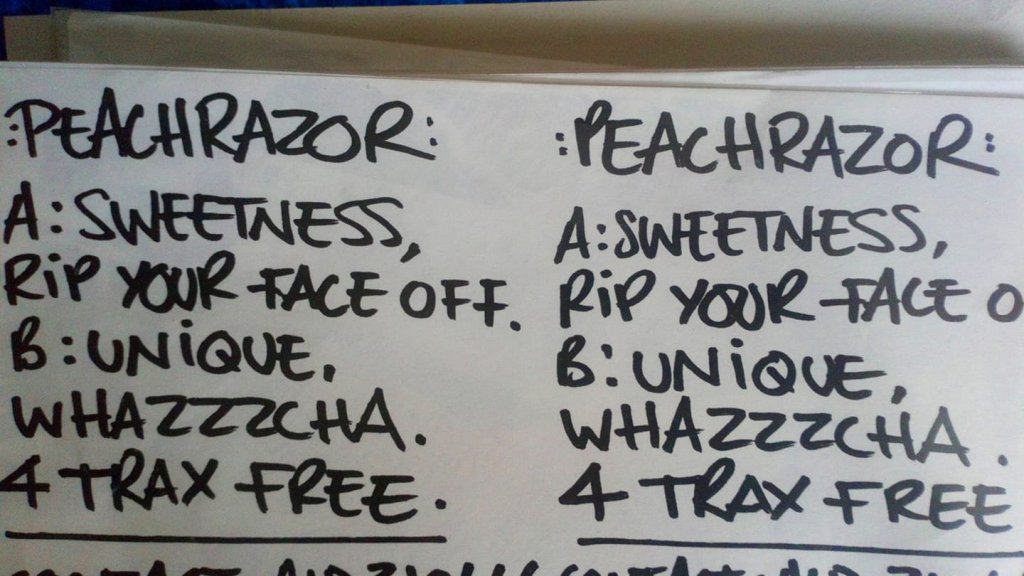 :PEACHRAZOR:
A: SWEETNESS,
RiP YOUR FACE OFF.
B: UNiQUE,
WHAZZZCHA.
4 TRAX FREE.
:PEACHRAZOR:
A: SWEETNESS,
RiP YOUR FACE O
B: UNiQUE,
WHAZZZCHA.
4 TRAX FREE